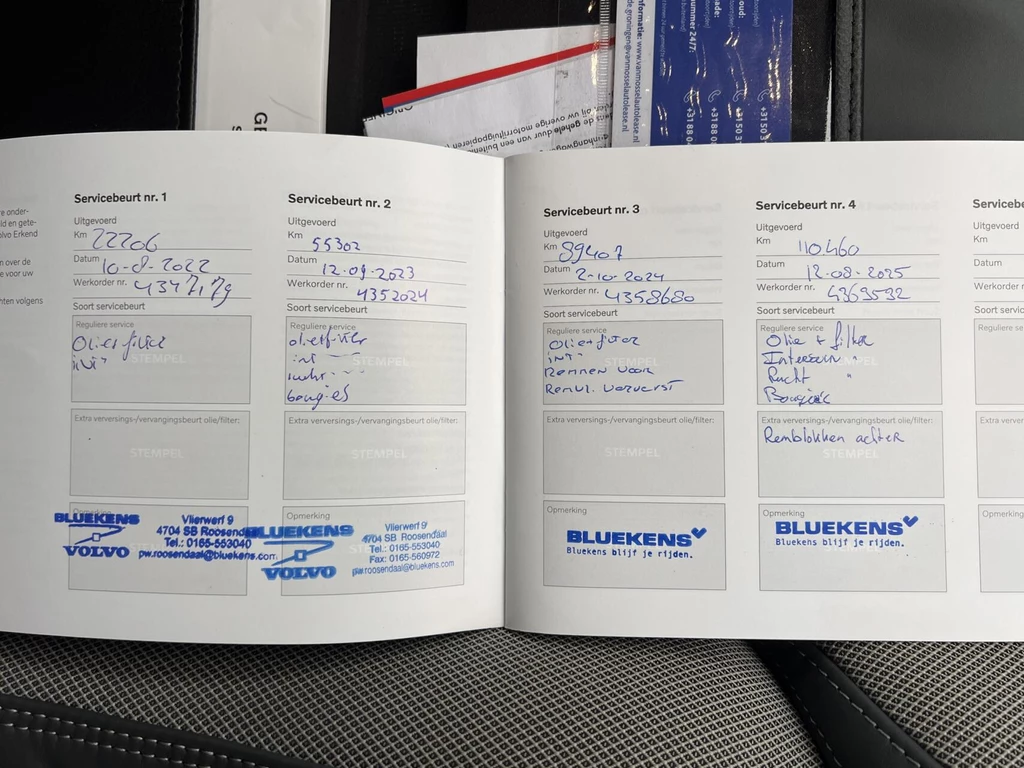 Informatie: www.vanmosselautolease.nl
de.groningen@vanmosselautolease.nl
nummer 24/7:
gehele duur van
overige motorrijtuigpapieren
Servicebeurt nr. 1
Uitgevoerd
Km 22206
Datum 10-8-2022
Werkorder nr.
Soort servicebeurt
Reguliere service
STEMPEL
Extra verversings-/vervangingsbeurt olie/filter:
STEMPEL
Opmerking
BLUEKENS
VOLVO
Vlierwerf 9
4704 SB Roosendaal
Tel.: 0165-553040
pw.roosendaal@bluekens.com
Servicebeurt nr. 2
Uitgevoerd
Km 55302
Datum 12-09-2023
Werkorder nr. 4352024
Soort servicebeurt
Reguliere service
bougies
Extra verversings-/vervangingsbeurt olie/filter:
STEMPEL
Opmerking
BLUEKENS
VOLVO
Vlierwerf 9
4704 SB Roosendaal
Tel.: 0165-553040
Fax: 0165-560972
pw.roosendaal@bluekens.com
Servicebeurt nr. 3
Uitgevoerd
Km 89407
Datum 2-10-2024
Werkorder nr. 4358680
Soort servicebeurt
Reguliere service
STEMPEL
int "
Remmen voor
Remvl. ververst
Extra verversings-/vervangingsbeurt olie/filter:
STEMPEL
Opmerking
BLUEKENS
Bluekens blijf je rijden.
Servicebeurt nr. 4
Uitgevoerd
Km 110.460
Datum 12-08-2025
Werkorder nr. 4369532
Soort servicebeurt
Reguliere service
Olie + filter
Interieur "
Lucht "
Bougies
Extra verversings-/vervangingsbeurt olie/filter:
Remblokken achter
STEMPEL
Opmerking
BLUEKENS
Bluekens blijf je rijden.
Uitgevoerd
Km
Datum
Werkorder nr.